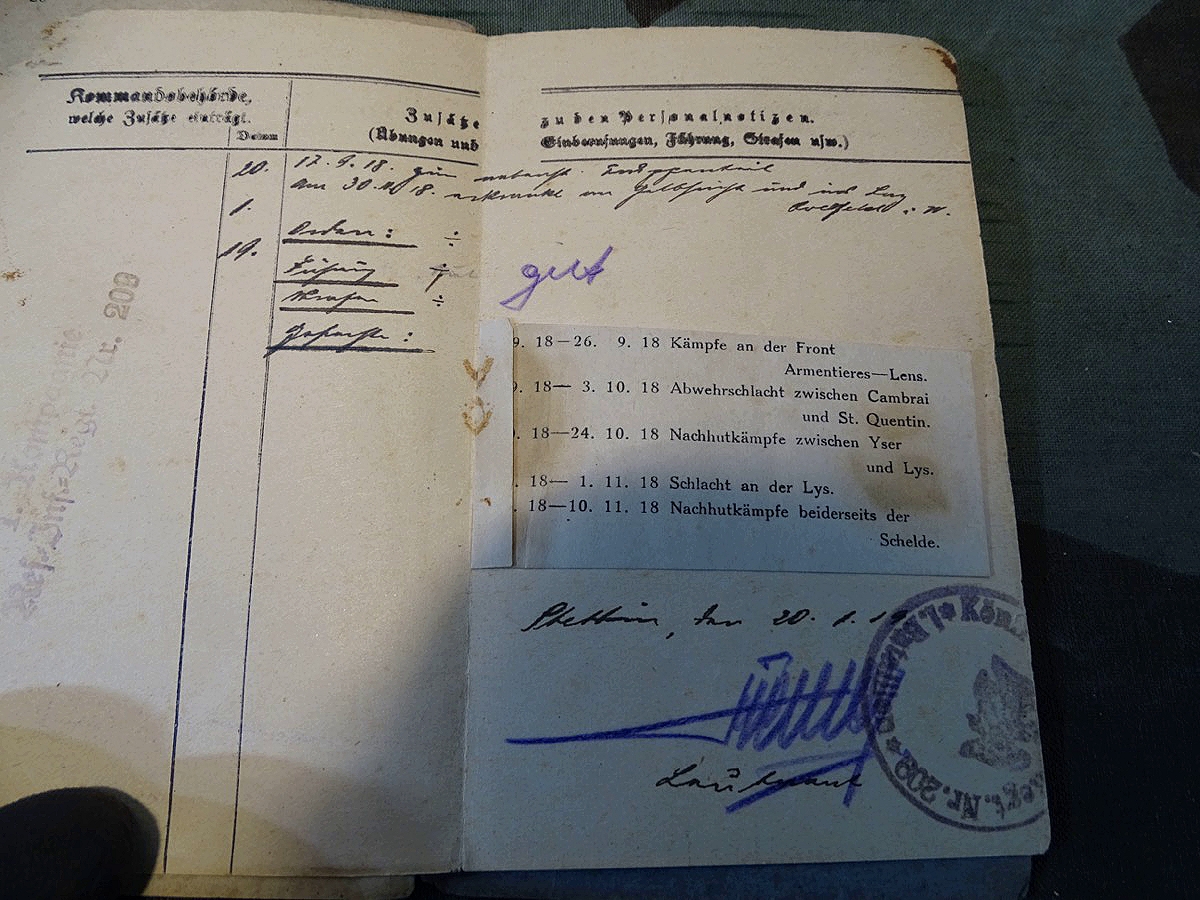 Kommandobehörde,
welche Zusätze einträgt.
Datum
Zusätze zu den Personalnotizen.
(Übungen und Einberufungen, Führung, Strafen usw.)
20.
1.
19.
17. 9. 18. zur
am 30. 18. erkrankt an Gelbsucht und ins Laz
Orden: ÷
Führung gut
Strafen ÷
Gefechte:
9. 18—26. 9. 18 Kämpfe an der Front
Armentieres—Lens.
9. 18— 3. 10. 18 Abwehrschlacht zwischen Cambrai
und St. Quentin.
. 18—24. 10. 18 Nachhutkämpfe zwischen Yser
und Lys.
. 18— 1. 11. 18 Schlacht an der Lys.
. 18—10. 11. 18 Nachhutkämpfe beiderseits der
Schelde.
Stettin, den 20. 1. 19
Leutnant
Kompagnie
Res.=Inf.=Regt. Nr. 209
Regt. Nr. 209 * I. Bataillon *